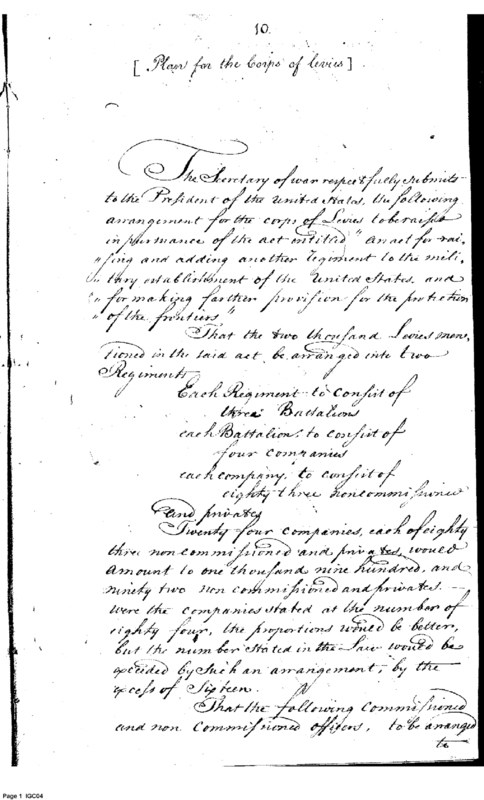 10.
[ Plan for the Corps of Levies ]
The Secretary of war respectfully submits
to the President of the United States, the following
arrangement for the corps of Levies to be raised
in pursuance of the act entitled " An act for rai-
" sing and adding another Regiment to the mili-
" tary establishment of the United States, and
" for making farther provision for the protection
" of the frontiers "
That the two thousand Levies men-
tioned in the said act, be arranged into two
Regiments
Each Regiment to consist of
three Battalions
each Battalion, to consist of
four companies
each company, to consist of
eighty three noncommissioned
and privates
Twenty four companies, each of eighty
three non commissioned and privates, would
amount to one thousand nine hundred, and
ninety two non commissioned and privates. —
Were the companies stated at the number of
eighty four, the proportions would be better,
but the number stated in the Law would be
exceeded by such an arrangement, by the
excess of Sixteen.
That the following Commissioned
and non Commissioned officers, to be arranged
to
Page 1 IGC04